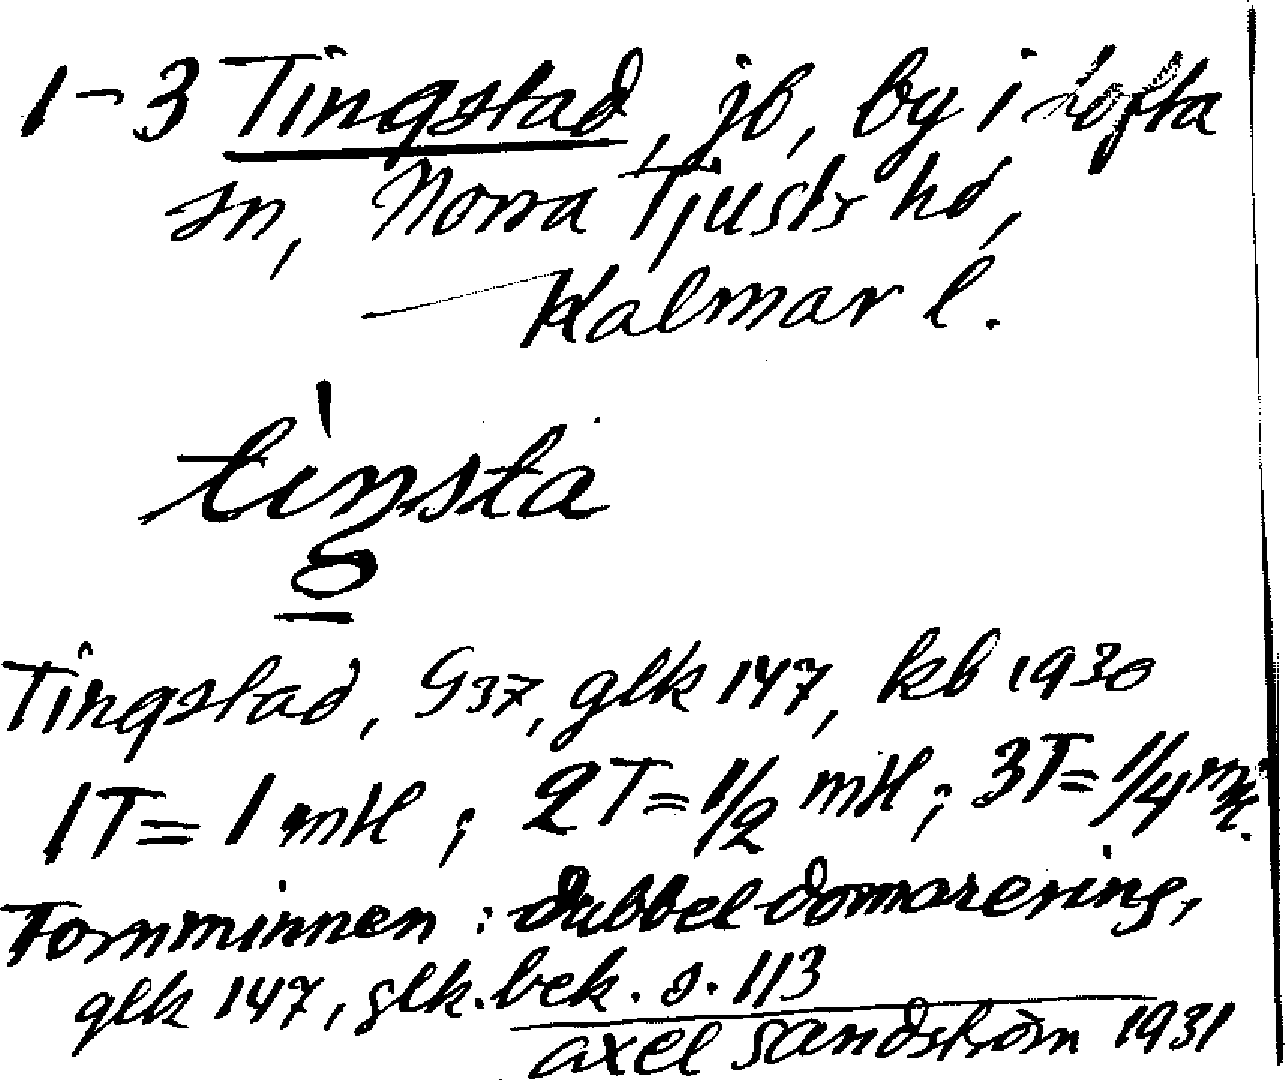 1-3 Tingstad, jb, by i Lofta
sn, Norra Tjusts hd,
Kalmar l.
tiŋsta
Tingstad, G37, glk 147, kb 1930
1T = 1 mtl ; 2T = 1/2 mtl ; 3T = 1/4 mtl.
Fornminnen : dubbel domarering,
glk 147, glk.bek. s. 113
Axel Sandström 1931